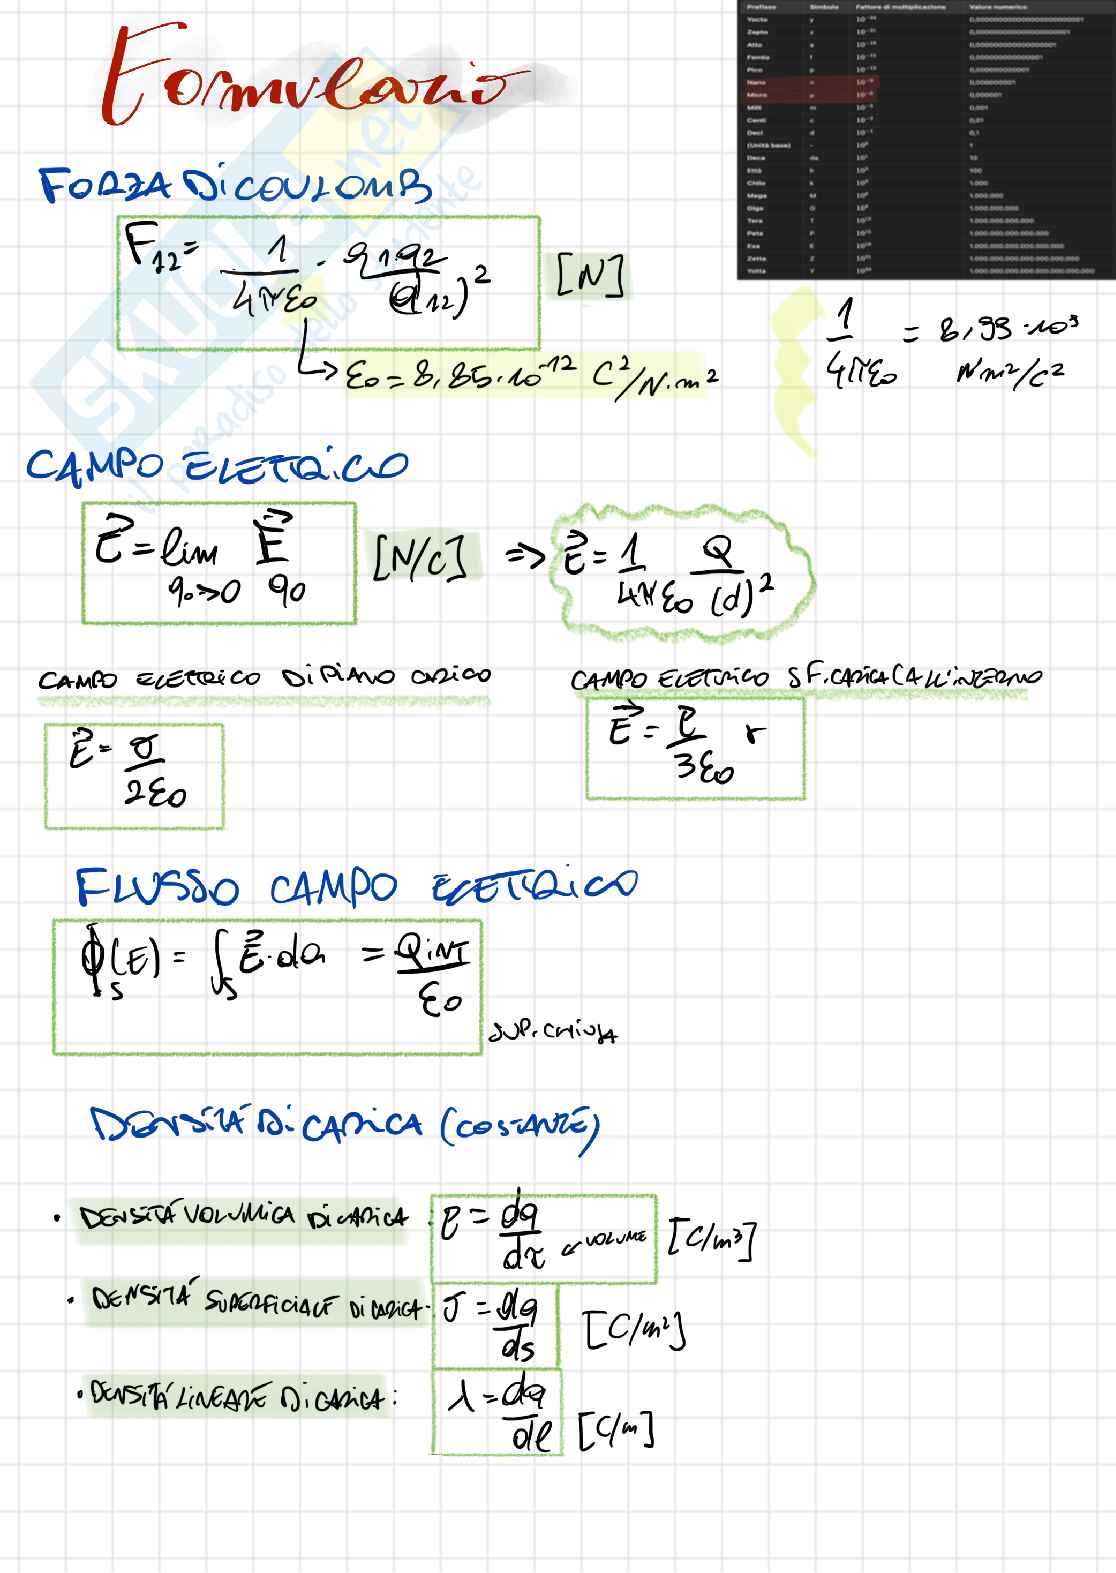 Formulario
Prefisso Simbolo Fattore di moltiplicazione Valore numerico
Yocto y 10⁻²⁴ 0,000000000000000000000001
Zepto z 10⁻²¹ 0,000000000000000000001
Atto a 10⁻¹⁸ 0,000000000000000001
Femto f 10⁻¹⁵ 0,000000000000001
Pico p 10⁻¹² 0,000000000001
Nano n 10⁻⁹ 0,000000001
Micro μ 10⁻⁶ 0,000001
Milli m 10⁻³ 0,001
Centi c 10⁻² 0,01
Deci d 10⁻¹ 0,1
(Unità base) - 10⁰ 1
Deca da 10¹ 10
Etto h 10² 100
Chilo k 10³ 1.000
Mega M 10⁶ 1.000.000
Giga G 10⁹ 1.000.000.000
Tera T 10¹² 1.000.000.000.000
Peta P 10¹⁵ 1.000.000.000.000.000
Exa E 10¹⁸ 1.000.000.000.000.000.000
Zetta Z 10²¹ 1.000.000.000.000.000.000.000
Yotta Y 10²⁴ 1.000.000.000.000.000.000.000.000
SKUOLA.net
il paradiso dello studente
FORZA DI COULOMB
F₁₂ = 1/4πε₀ · q₁q₂/(d₁₂)² [N]
→ ε₀ = 8,85·10⁻¹² C²/N·m²
1/4πε₀ = 8,99·10⁹
Nm²/C²
CAMPO ELETTRICO
E⃗ = lim q₀→0 E⃗/q₀ [N/C] ⇒ E⃗ = 1/4πε₀ Q/(d)²
CAMPO ELETTRICO DI PIANO CARICO
CAMPO ELETTRICO SF. CARICA (ALL'INTERNO
E⃗ = σ/2ε₀
E⃗ = ρ/3ε₀ r
FLUSSO CAMPO ELETTRICO
ϕₛ(E) = ∫ₛ E⃗·da = QINT/ε₀
SUP. CHIUSA
DENSITÁ DI CARICA (COSTANTE)
· DENSITÁ VOLUMICA DI CARICA : ρ = dq/dτ ← VOLUME [C/m³]
· DENSITÁ SUPERFICIALE DI CARICA · σ = dq/ds [C/m²]
· DENSITÁ LINEARE DI CARICA : λ = dq/dl [C/m]